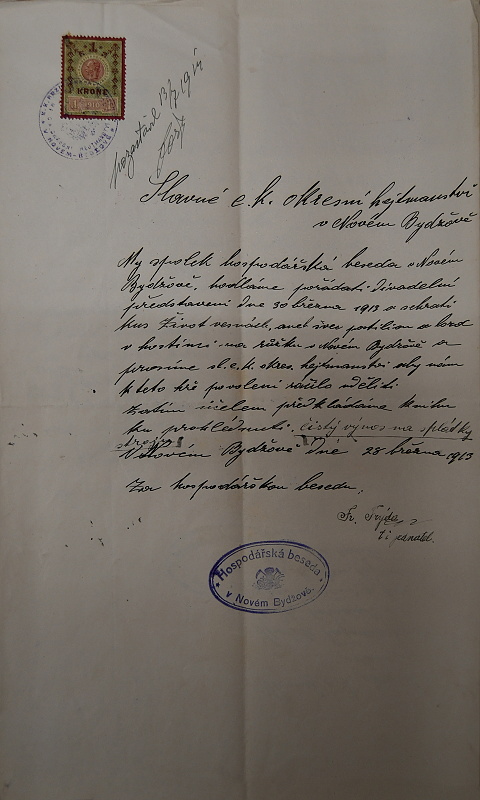 1
KRONE
1910
V NOVÉM-BYDŽOVĚ
13/7 1914
Slavné c. k. okresní hejtmanství
v Novém Bydžově
My spolek hospodářská beseda v Novém
Bydžově, hodláme pořádati Divadelní
představení dne 30 března 1913 a sehrati
kus Život vesnách, aneb švec petilion a lord
v hostinci na růžku v Novém Bydžově a
prosíme sl. c. k. okres. hejtmanství aby nám
k této hře povolení račilo uděliti
Zatím účelem předkládáme knihu
ku prohlednutí. čistý výnos na splátky
strojů
V Novém Bydžově Dne 28 března 1913
Za hospodářskou besedu,
Fr.
Hospodářská beseda
v Novém Bydžově.